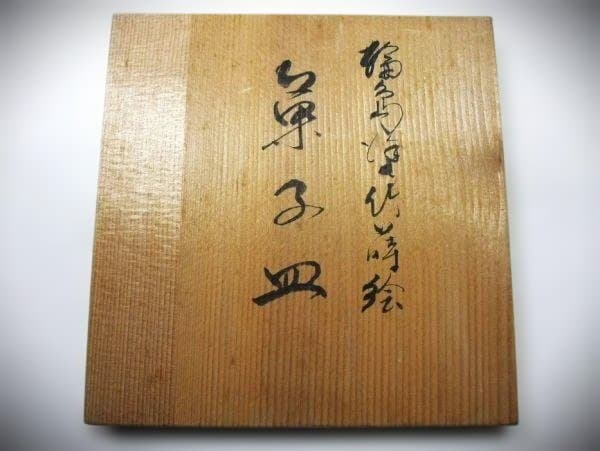 輪島塗竹蒔絵
菓子皿